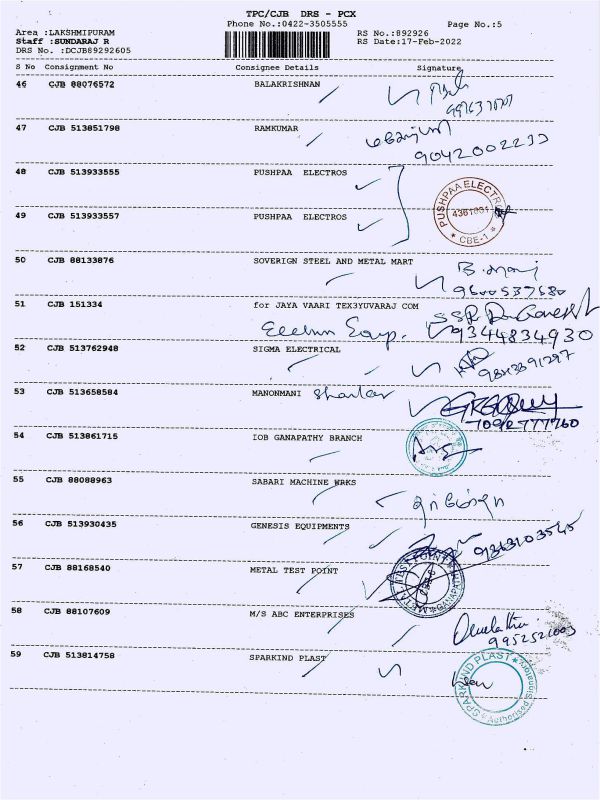 TPC/CJB DRS - PCX
Phone No.:0422-3505555
Page No.:5
Area :LAKSHMIPURAM
RS No.:892926
Staff :SUNDARAJ R
RS Date:17-Feb-2022
DRS No. :DCJB89292605
S No Consignment No Consignee Details Signature
46 CJB 88076572 BALAKRISHNAN
47 CJB 513851798 RAMKUMAR
9042002233
48 CJB 513933555 PUSHPAA ELECTROS
49 CJB 513933557 PUSHPAA ELECTROS
PUSHPAA ELECTROS
CBE-1
50 CJB 88133876 SOVERIGN STEEL AND METAL MART
B. Mani
9600537680
51 CJB 151334 for JAYA VAARI TEX3YUVARAJ COM
9344834930
52 CJB 513762948 SIGMA ELECTRICAL
53 CJB 513658584 MANONMANI Shankar
7092777760
54 CJB 513861715 IOB GANAPATHY BRANCH
55 CJB 88088963 SABARI MACHINE WRKS
56 CJB 513930435 GENESIS EQUIPMENTS
57 CJB 88168540 METAL TEST POINT
METAL TEST POINT
GANAPATHY
58 CJB 88107609 M/S ABC ENTERPRISES
59 CJB 513814758 SPARKIND PLAST
SPARKIND PLAST
Authorised Signatory